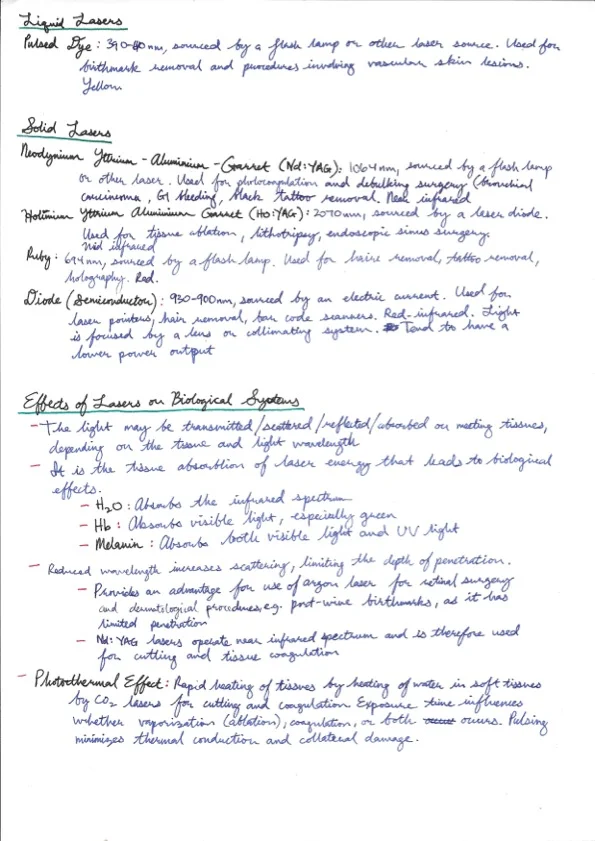 Liquid Lasers
Pulsed Dye: 390-nm, sourced by a flash lamp or other laser source. Used for
birthmark removal and procedures involving vascular skin lesions.
Yellow
Solid Lasers
Neodynium Yttrium-Aluminium-Garret (Nd:YAG): 1064nm, sourced by a flash lamp
or other laser. Used for photocoagulation and debulking surgery (bronchial
carcinoma, GI bleeding, black tattoo removal. Near infrared
Holmium Yttrium Aluminium Garret (Ho:YAG): 2070nm, sourced by a laser diode.
Used for tissue ablation, lithotripsy, endoscopic sinus surgery.
Mid infrared
Ruby: 694nm, sourced by a flash lamp. Used for haire removal, tattoo removal,
holography. Red.
Diode (Semiconductor): 930-900nm, sourced by an electric current. Used for
laser pointers, hair removal, bar code scanners. Red-infrared. Light
is focused by a lens or collimating system. Tend to have a
lower power output
Effects of Lasers on Biological Systems
- The light may be transmitted/scattered/reflected/absorbed on meeting tissues,
depending on the tissue and light wavelength
- It is the tissue absorbtion of laser energy that leads to biological
effects.
- H2O: Absorbs the infrared spectrum
- Hb: Absorbs visible light, especially green
- Melanin: Absorbs both visible light and UV light
- Reduced wavelength increases scattering, limiting the depth of penetration.
- Provides an advantage for use of argon laser for retinal surgery
and dermatological procedures, e.g. port-wine birthmarks, as it has
limited penetration
- Nd:YAG lasers operate near infrared spectrum and is therefore used
for cutting and tissue coagulation
- Photothermal Effect: Rapid heating of tissues by heating of water in soft tissues
by CO2 lasers for cutting and coagulation Exposure time influences
whether vaporization (ablation), coagulation, or both occurs. Pulsing
minimizes thermal conduction and collateral damage.